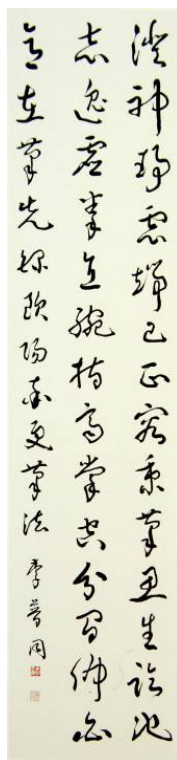 澄神靜慮端己正容秉筆思生臨池
志逸虛拳直腕指齊掌空分間佈白
意在筆先錄歐陽率更筆法 李普同